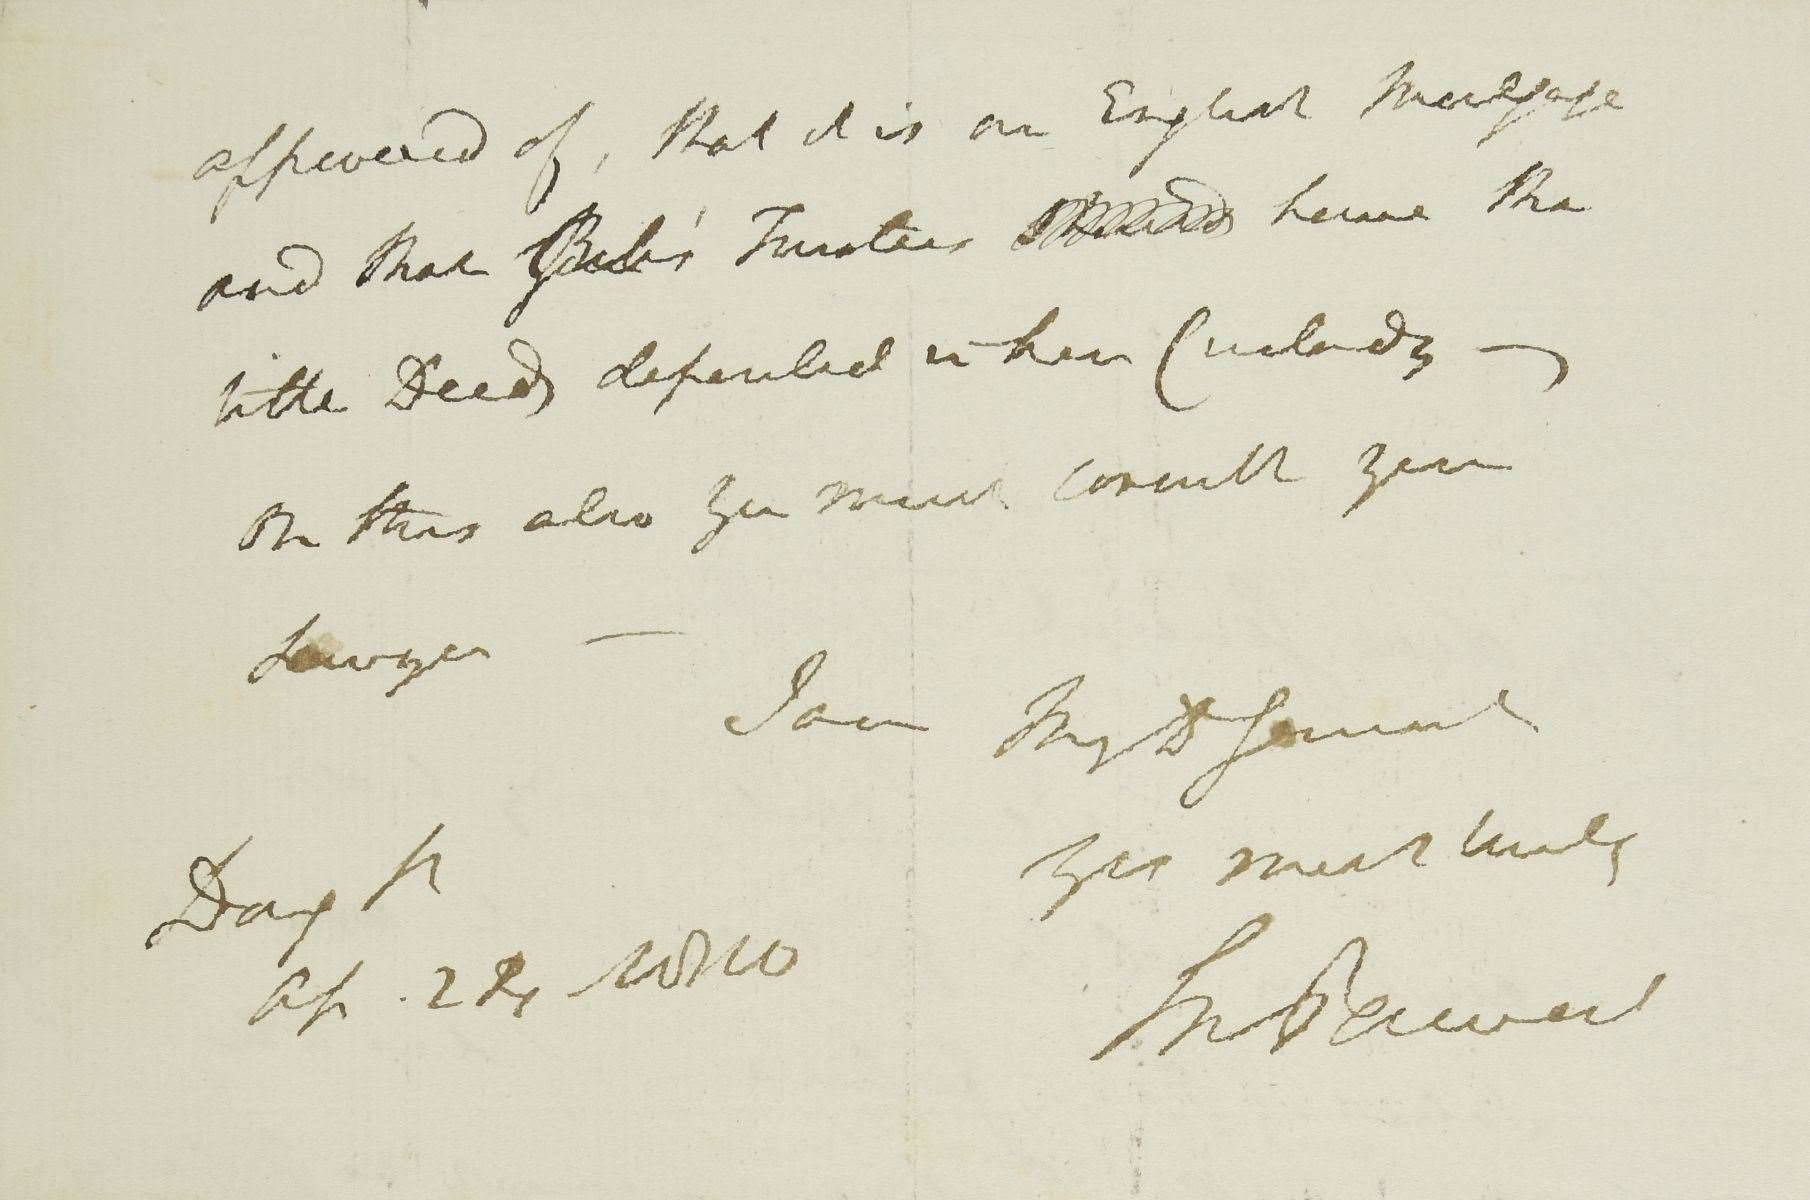 approved of, that it is an English Mortgage
and that Trustees have the
tittle Deeds deposited in their Custody —
On this also you must consult your
Lawyer —
I am My D General
Yrs most truly
Day St
Ap. 24 1810